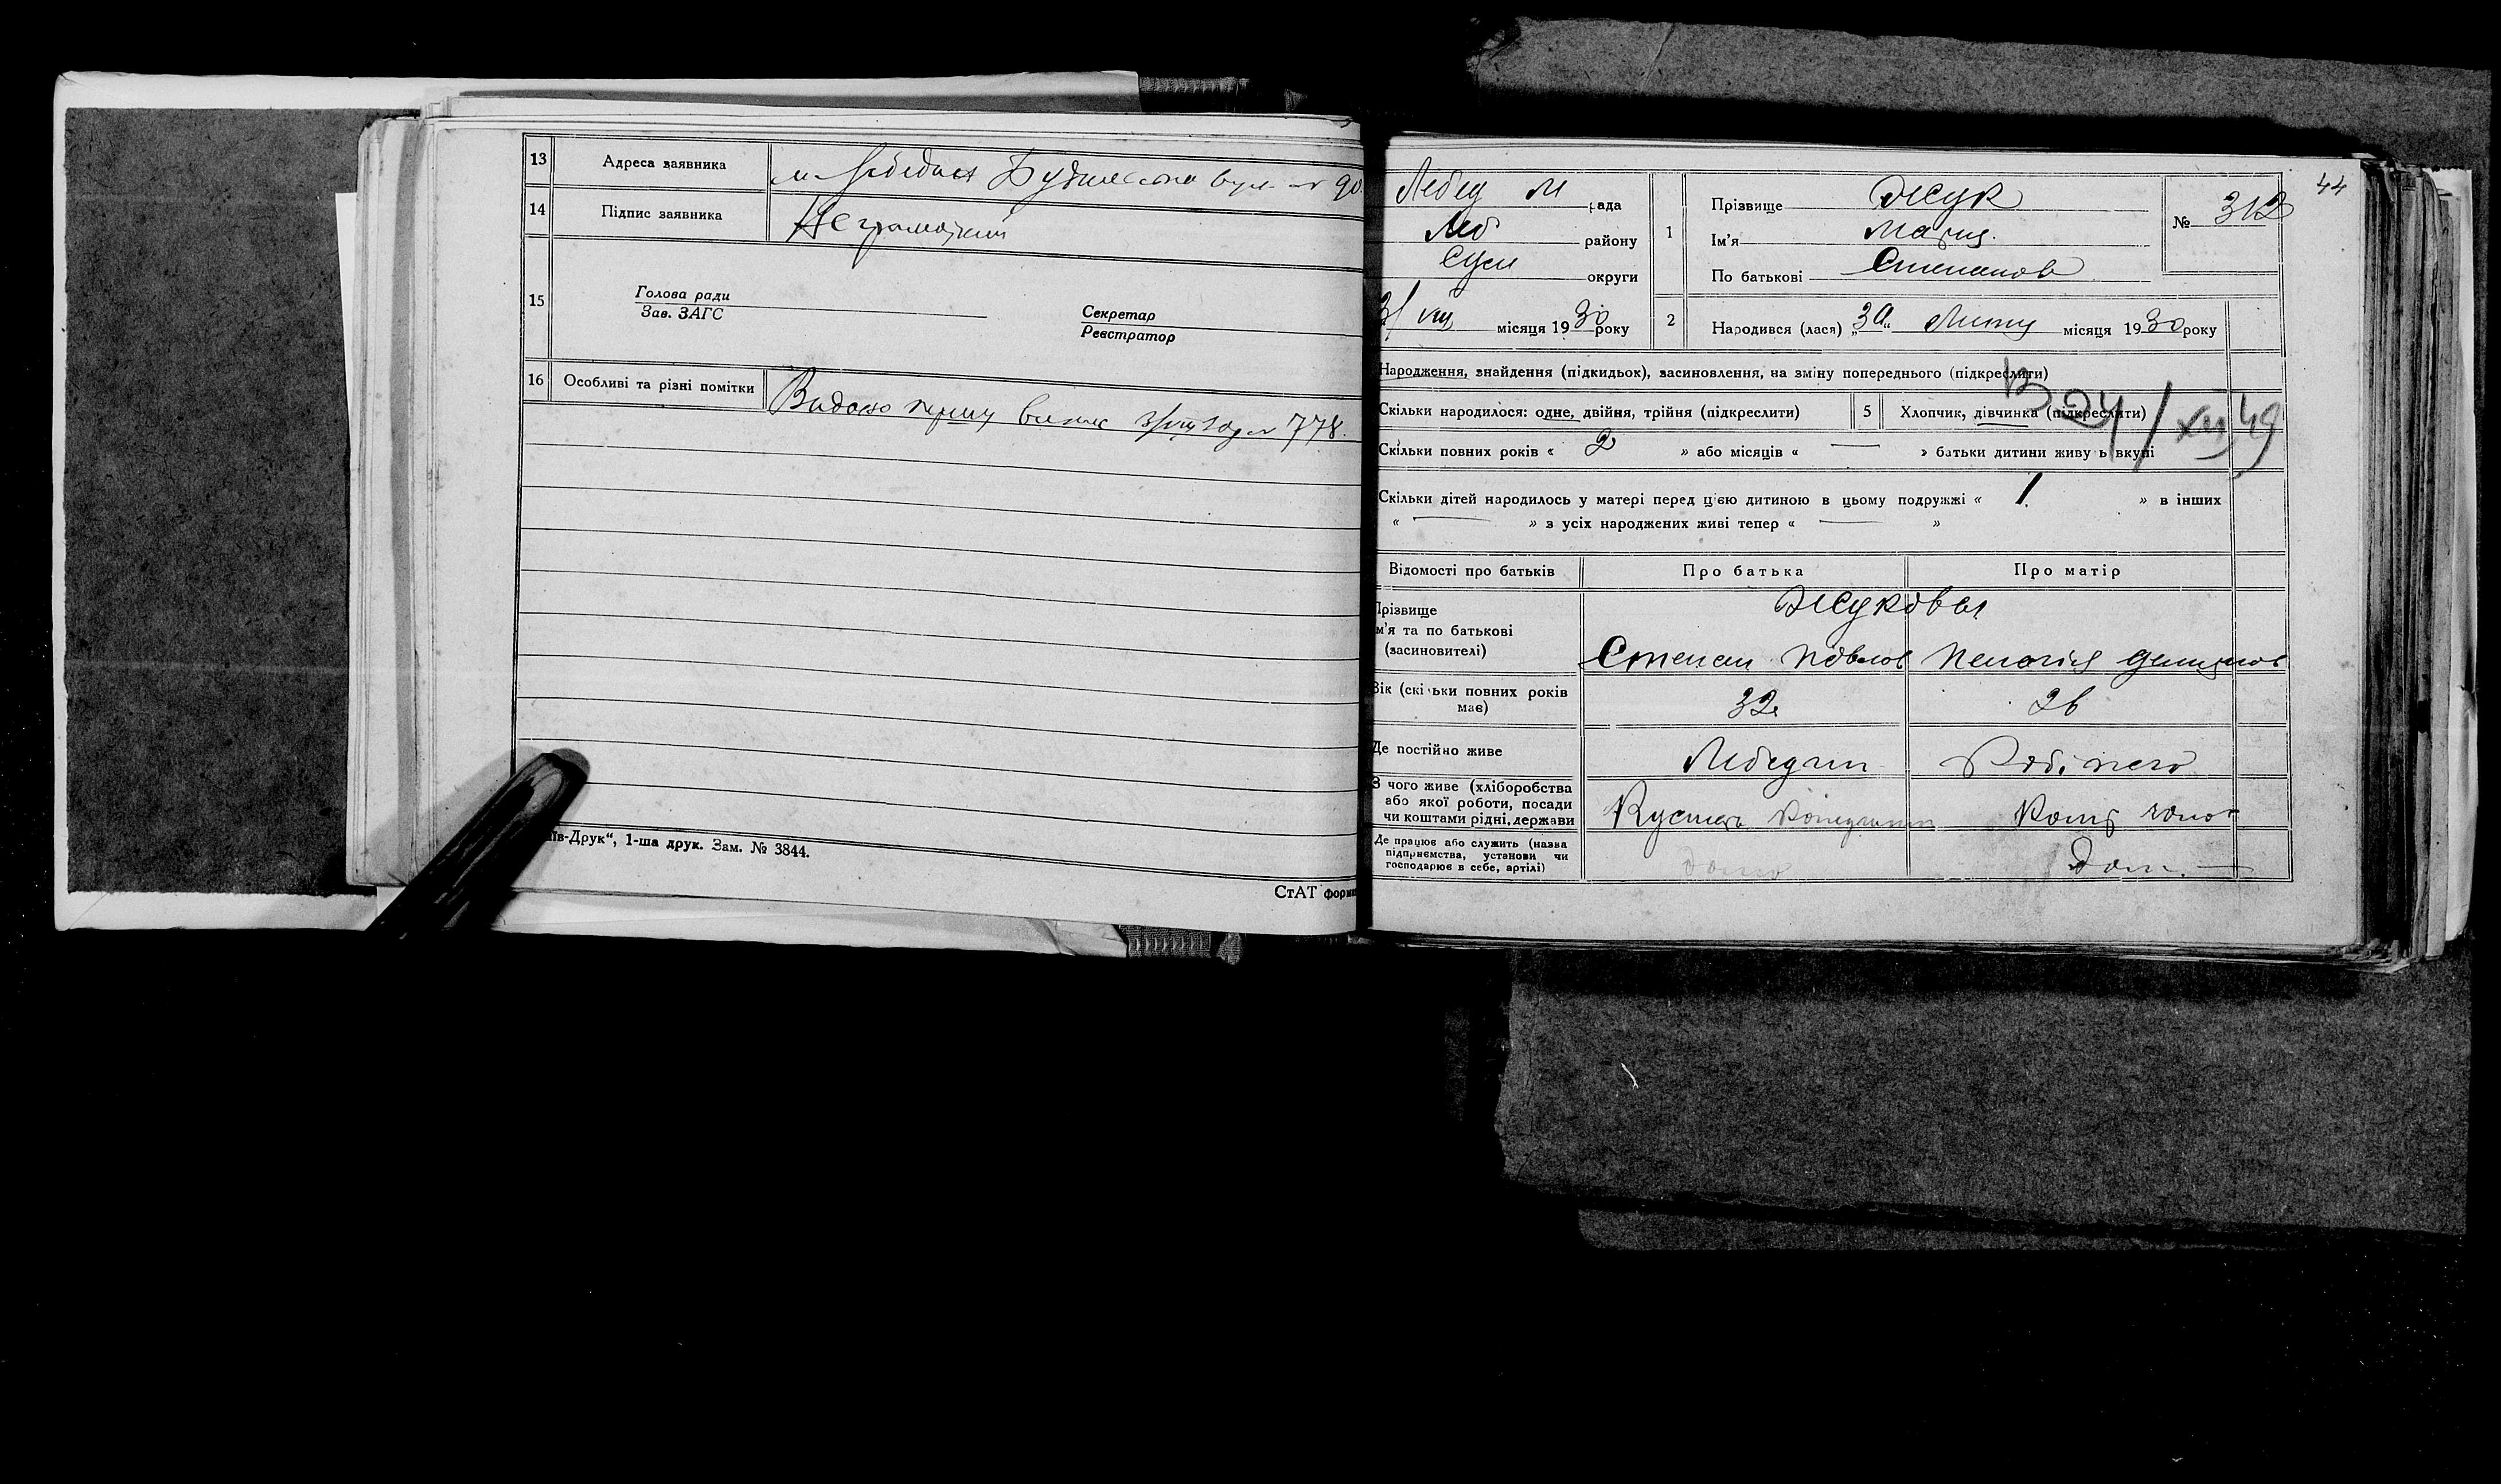 13 Адреса заявника м. Лебедин Будилсська вул. № 90
14 Підпис заявника Неграмотний
15 Голова ради
Зав. ЗАГС
Секретар
Реєстратор
16 Особливі та різні помітки Видано першу 778.
їв-Друк“, 1-ша друк. Зам. № 3844.
СтАТ форма
44
Лебед М рада
Леб району
Сум округи
31 VIII місяця 1930 року
1 Прізвище Жук
Ім'я Мария
По батькові Степанов
№ 312
2 Народився (лася) „ “ Лютц місяця 1930 року
Народження, знайдення (підкидьок), засиновлення, на зміну попереднього (підкреслити)
Скільки народилося: одне, двійня, трійня (підкреслити) 5 Хлопчик, дівчинка (підкреслити)
В 24/XII 49
Скільки повних років « 2 » або місяців « — » батьки дитини живуть вкупі
Скільки дітей народилось у матері перед цією дитиною в цьому подружжі « 1 » в інших
« — » з усіх народжених живі тепер « — »
Відомості про батьків Про батька Про матір
Прізвище Жуковы
ім'я та по батькові
(засиновителі) Степан Павлов Пелагія Демянов
Вік (скільки повних років
має) 32 26
Де постійно живе Лебедин
З чого живе (хліборобства
або якої роботи, посади
чи коштами рідні, держави Кустарь
Де працює або служить (назва
підприємства, установи чи
господарює в себе, артілі) Дома Дом. —